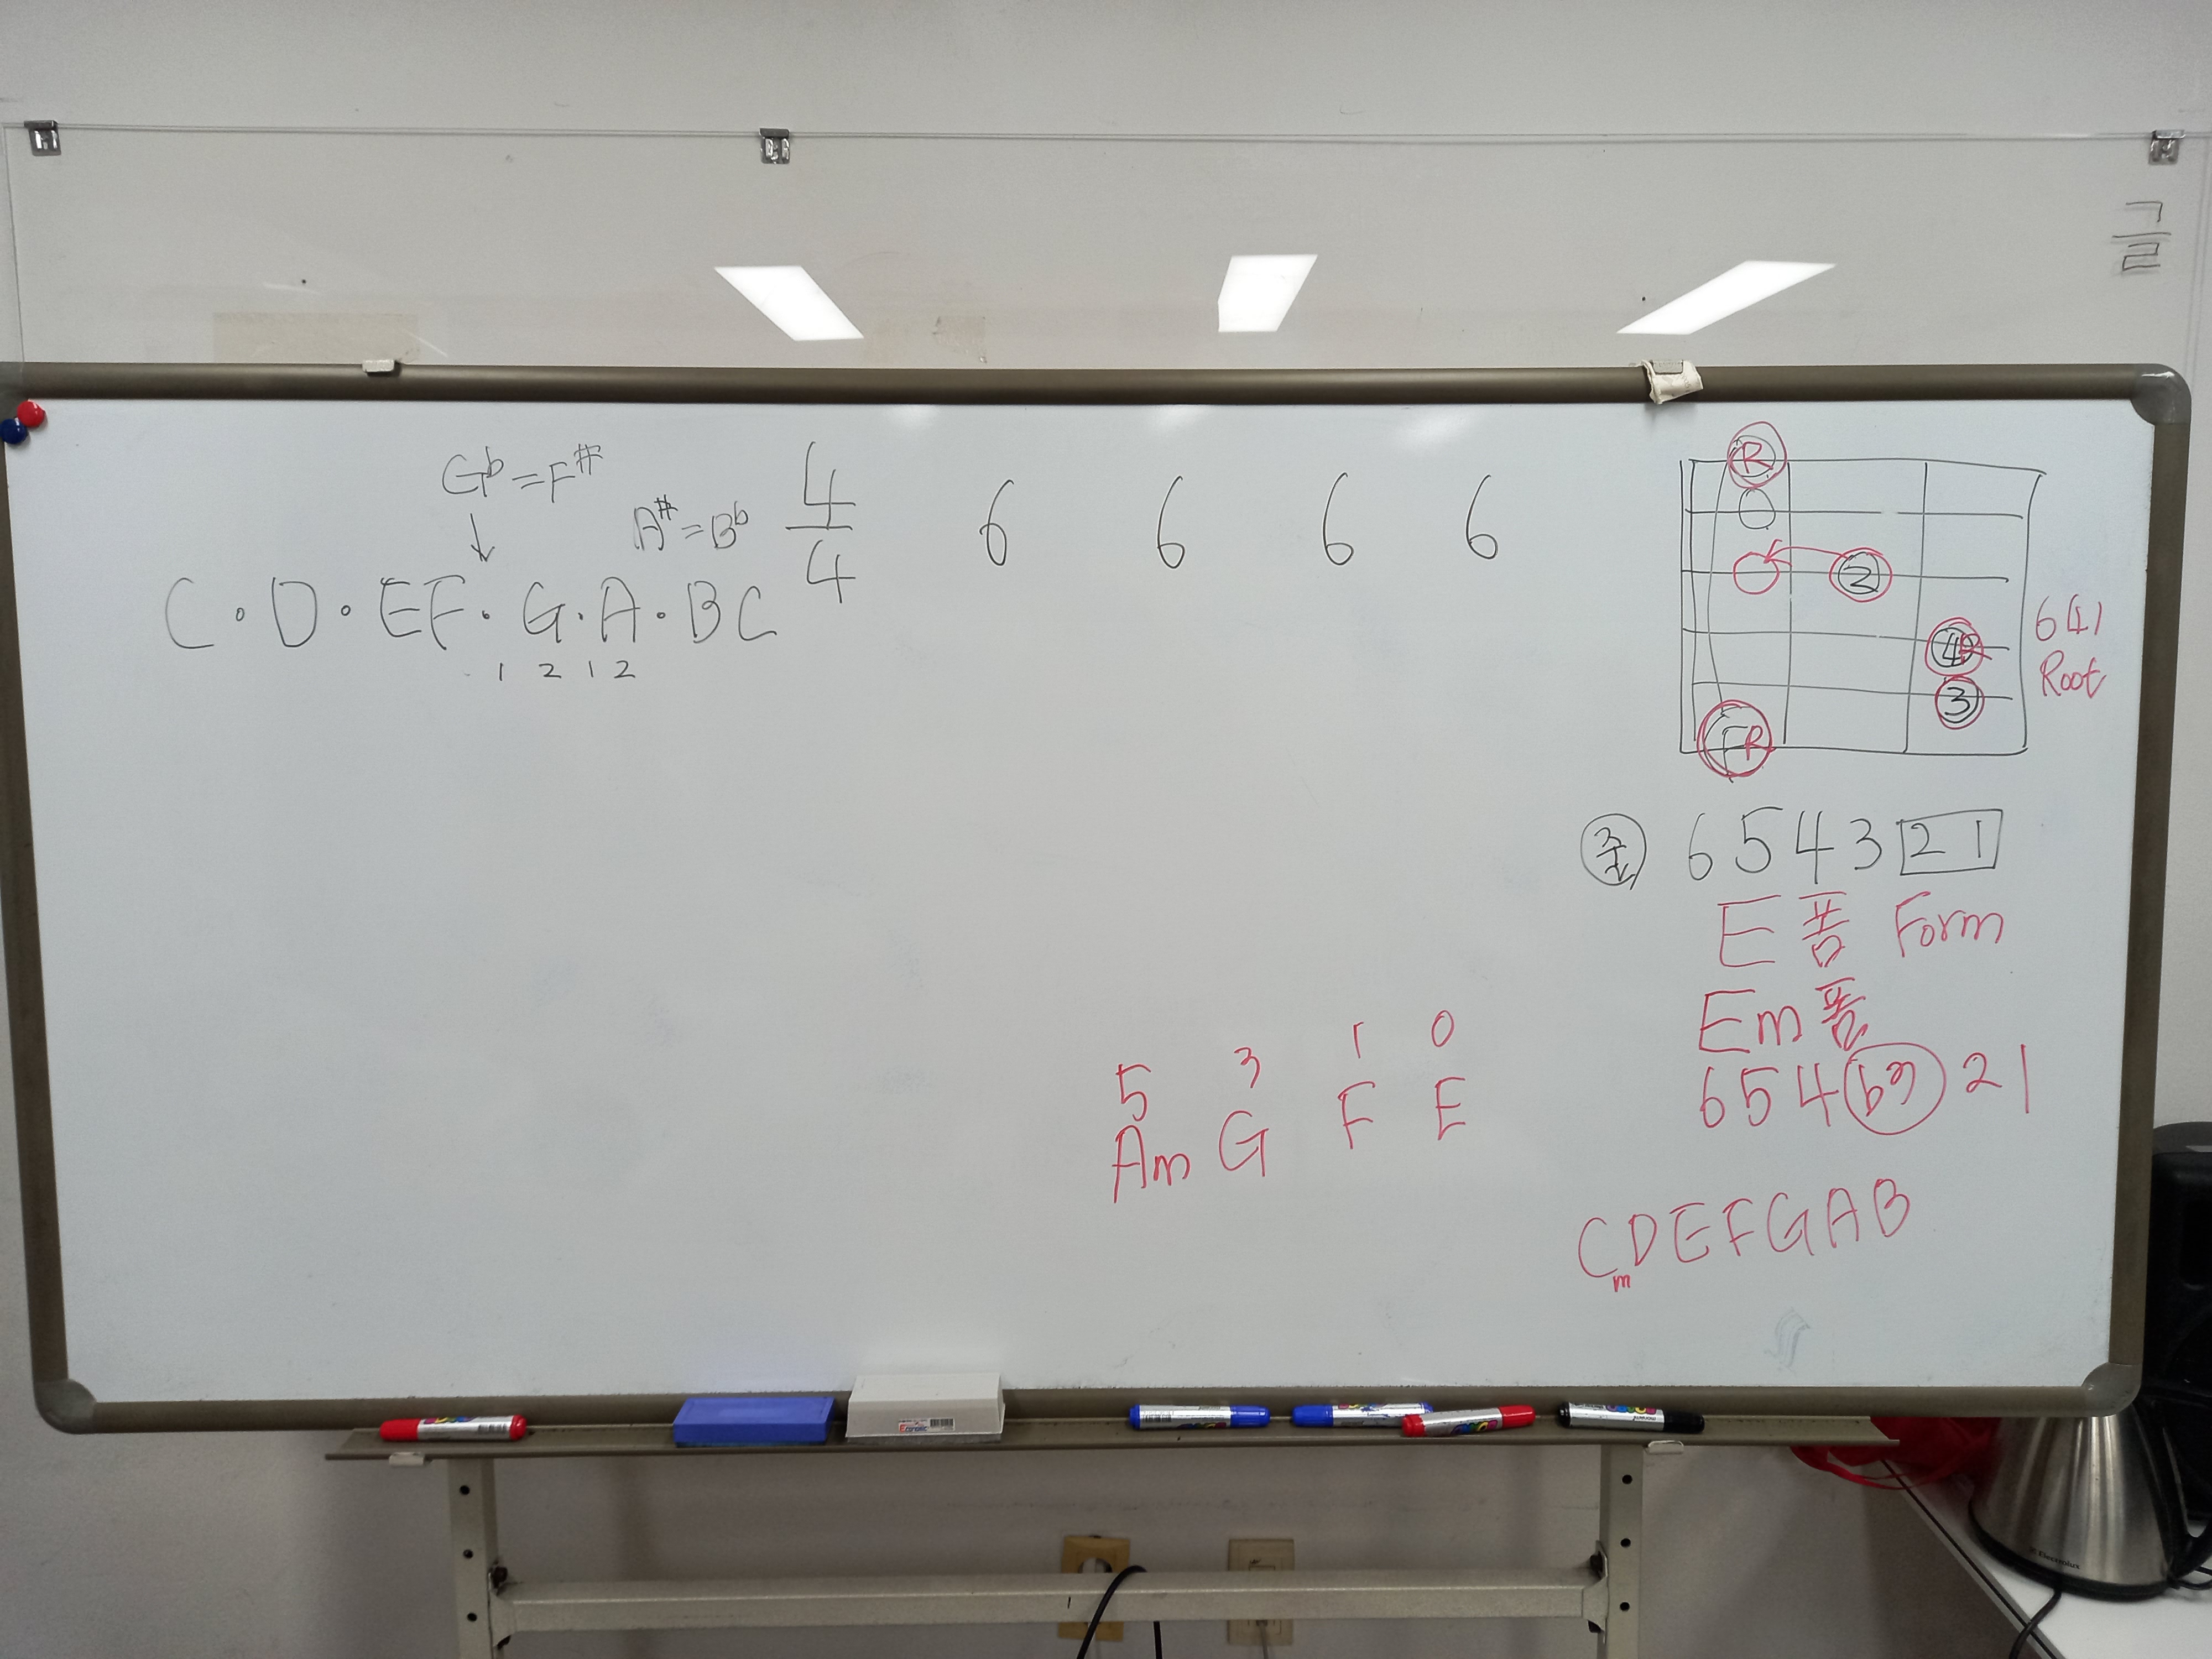 글
G♭=F#
↓
A#=B♭
4/4 6 6 6 6
C·D·EF·G·A·BC
1 2 1 2
R
2
4 R
3
F R
641
Root
줄 6 5 4 3 2 1
E 폼 Form
Em폼
6 5 4 ♭3 2 1
5 3 1 0
Am G F E
CDEFGAB
m
Electrolux